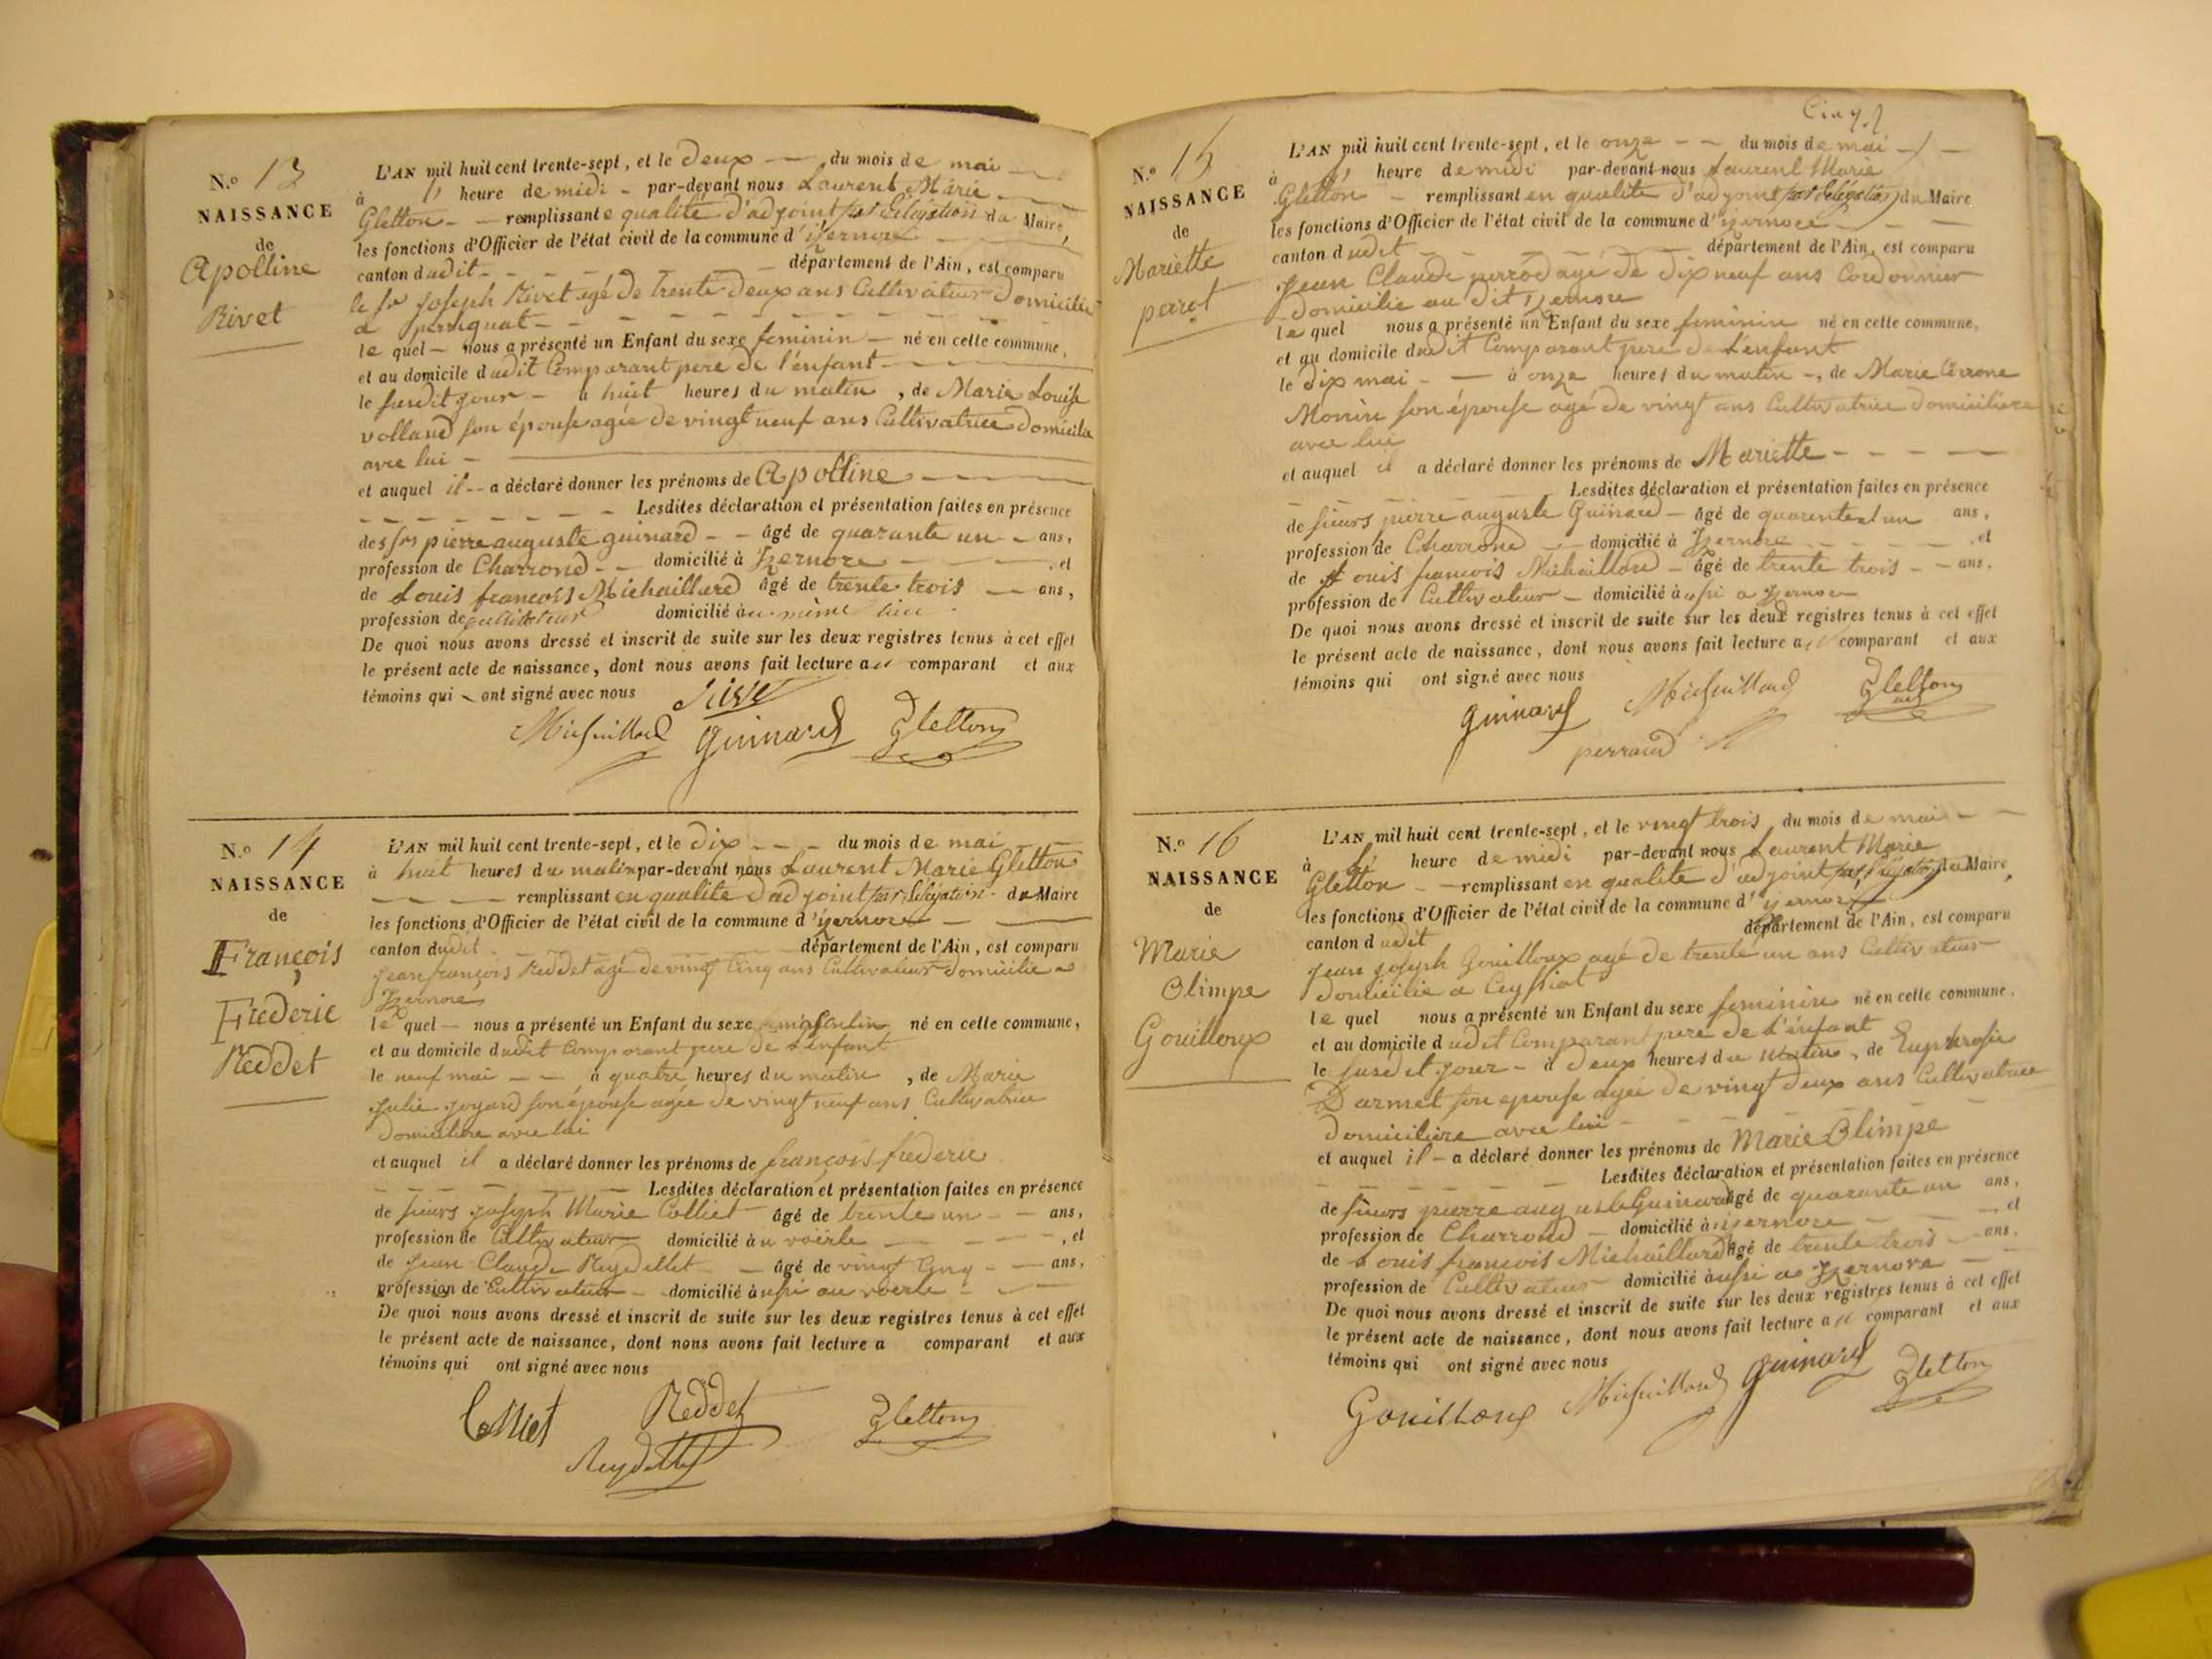 N.º 13
NAISSANCE
de
Apolline
Rivet
L'AN mil huit cent trente-sept, et le Deux du mois de mai
à l' heure de midi par-devant nous Laurent Marie
Gletton remplissant e qualité d'adjoint par Délégation du Maire,
les fonctions d'Officier de l'état civil de la commune d'izernore
canton dudit département de l'Ain, est comparu
le Sr Joseph Rivet agé de trente Deux ans Cultivateur Domicilié
a perriquat
le quel nous a présenté un Enfant du sexe feminin né en cette commune,
et au domicile dudit Comparant pere de l'énfant
le susdit jour à huit heures du matin, de Marie Louise
volland son épouse agée de vingt neuf ans Cultivatrice Domicilié
avec lui
et auquel il a déclaré donner les prénoms de Apolline
Lesdites déclaration et présentation faites en présence
des Srs pierre auguste guinard âgé de quarante un ans,
profession de Charrond domicilié à Izernore, et
de Louis francois Michaillard âgé de trente trois ans,
profession de cultivateur domicilié au même lieu
De quoi nous avons dressé et inscrit de suite sur les deux registres tenus à cet effet
le présent acte de naissance, dont nous avons fait lecture au comparant et aux
témoins qui ont signé avec nous
Michaillard guinard Gletton
N.º 14
NAISSANCE
de
François
Frederic
Reddet
L'AN mil huit cent trente-sept, et le Dix du mois de mai
à huit heures du matin par-devant nous Laurent Marie Gletton
remplissant en qualité D'adjoint par Délégation du Maire
les fonctions d'Officier de l'état civil de la commune d'izernore
canton dudit département de l'Ain, est comparu
Jean françois Reddet agé de vingt Cinq ans Cultivateur Domicilié a
Izernore
le quel nous a présenté un Enfant du sexe masculin né en cette commune,
et au domicile dudit Comparant pere de L'enfant
le neuf mai à quatre heures du matin, de Marie
Julie Joyard son épouse agée de vingt neuf ans Cultivatrice
Domiciliere avec lui
et auquel il a déclaré donner les prénoms de françois frederic
Lesdites déclaration et présentation faites en présence
de sieurs Joseph Marie Colliet âgé de trente un ans,
profession de Cultivateur domicilié au voërle, et
de Jean Claude Reydellet âgé de vingt Cinq ans,
profession de Cultivateur domicilié aussi au voërle
De quoi nous avons dressé et inscrit de suite sur les deux registres tenus à cet effet
le présent acte de naissance, dont nous avons fait lecture a comparant et aux
témoins qui ont signé avec nous
Colliet Reddet Gletton
Reydellet
Cinq
N.º 15
NAISSANCE
de
Mariette
perrot
L'AN mil huit cent trente-sept, et le onze du mois de mai
à l' heure de midi par-devant nous Laurent Marie
Gletton remplissant en qualité d'adjoint par Délégation du Maire
les fonctions d'Officier de l'état civil de la commune d'izernore
canton dudit département de l'Ain, est comparu
Jean Claude perrod agé de Dix neuf ans Cordonnier
Domicilié au Dit Izernore
le quel nous a présenté un Enfant du sexe feminin né en cette commune,
et au domicile dudit Comparant pere de L'enfant
le Dix mai à onze heures du matin, de Marie
Monin son épouse agé de vingt ans Cultivatrice Domiciliere
avec lui
et auquel il a déclaré donner les prénoms de Mariette
Lesdites déclaration et présentation faites en présence
de sieurs pierre auguste Guinard âgé de quarente et un ans,
profession de Charrond domicilié à Izernore, et
de Louis francois Michaillard âgé de trente trois ans,
profession de Cultivateur domicilié aussi a Izernore
De quoi nous avons dressé et inscrit de suite sur les deux registres tenus à cet effet
le présent acte de naissance, dont nous avons fait lecture au comparant et aux
témoins qui ont signé avec nous
guinard Michaillard Gletton
perraud
N.º 16
NAISSANCE
de
Marie
Olimpe
Gouilloux
L'AN mil huit cent trente-sept, et le vingt trois du mois de mai
à l' heure de midi par-devant nous Laurent Marie
Gletton remplissant en qualité d'adjoint par Délégation du Maire,
les fonctions d'Officier de l'état civil de la commune d'izernore
canton dudit département de l'Ain, est comparu
Jean Joseph Gouilloux agé de trente un ans Cultivateur
Domicilié a Ceyssiat
le quel nous a présenté un Enfant du sexe feminin né en cette commune,
et au domicile dudit Comparant pere de L'énfant
le susdit jour à Deux heures du matin, de Euphrosie
Darmet son epouse agée de vingt Deux ans Cultivatrice
Domiciliere avec lui
et auquel il a déclaré donner les prénoms de Marie Olimpe
Lesdites déclaration et présentation faites en présence
de sieurs pierre auguste Guinard âgé de quarante un ans,
profession de Charrond domicilié à izernore, et
de Louis francois Michaillard âgé de trente trois ans,
profession de Cultivateur domicilié aussi a Izernore
De quoi nous avons dressé et inscrit de suite sur les deux registres tenus à cet effet
le présent acte de naissance, dont nous avons fait lecture au comparant et aux
témoins qui ont signé avec nous
Gouilloux Michaillard guinard Gletton